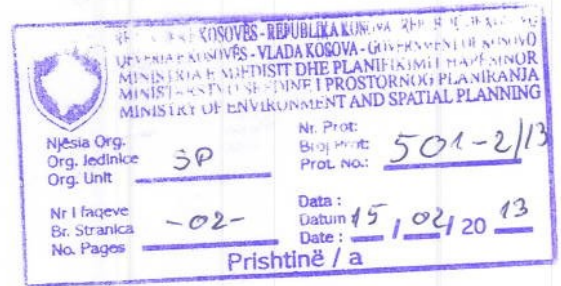 KOSOVËS - REPUBLIKA KOSOVA
KOSOVËS - VLADA KOSOVA - GOVERNMENT OF KOSOVO
MINISTRIA E MJEDISIT DHE PLANIFIKIMIT HAPËSINOR
MINISTARSTVO SREDINE I PROSTORNOG PLANIRANJA
MINISTRY OF ENVIRONMENT AND SPATIAL PLANNING
Njësia Org.
Org. Jedinice
Org. Unit
SP
Nr. Prot:
Broj Prot:
Prot. No.:
501-2/13
Nr i faqeve
Br. Stranica
No. Pages
-02-
Data :
Datum
Date :
15 / 02 / 20 13
Prishtinë / a